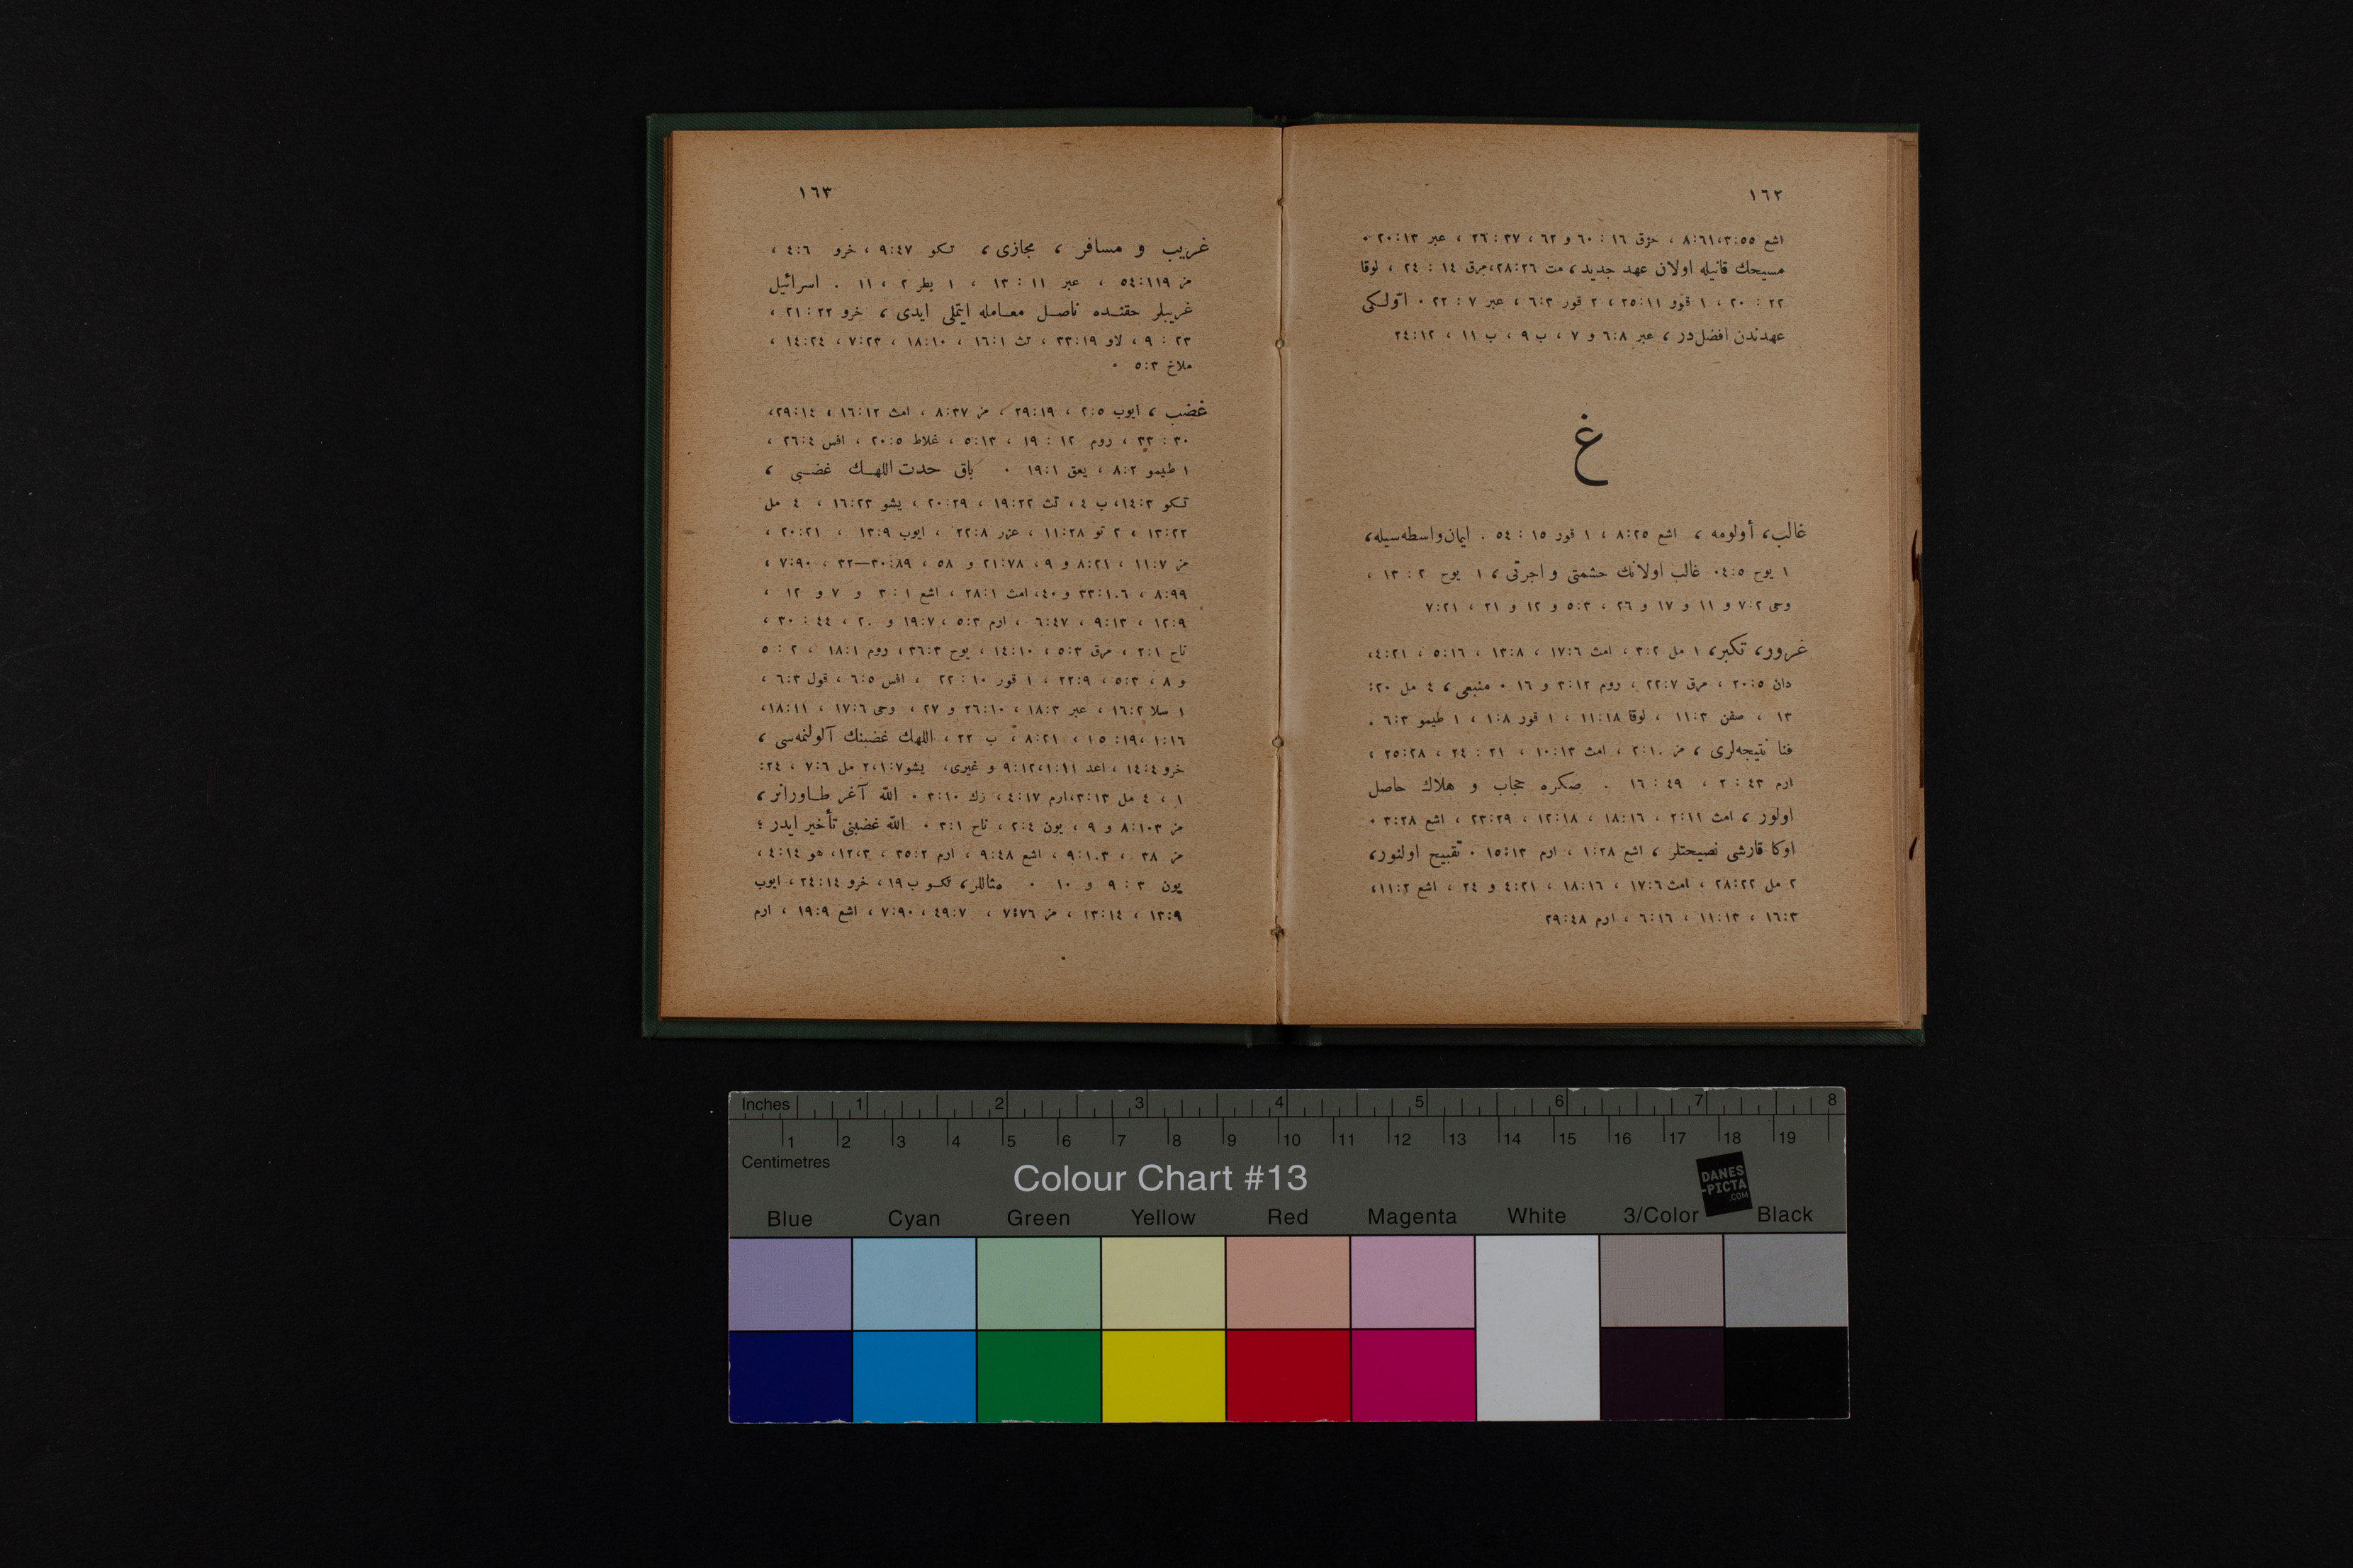 ١٦٢
اشع ٣:٥٥،‏ ٨:٦١ ، حزق ١٦ : ٦٠ و ٦٢ ، ٣٧ : ٢٦ ، عبر ٢٠:١٣ ٠
مسيحك قانيله اولان عهد جديد ، مت ٢٨:٢٦ ، مرق ١٤ : ٢٤ ، لوقا
٢٢ : ٢٠ ، ١ قور ٢٥:١١ ، ٢ قور ٦:٣ ، عبر ٧ : ٢٢ ٠ اوّلكى
عهدندن افضل‌در ، عبر ٦:٨ و ٧ ، ب ٩ ، ب ١١ ، ٢٤:١٢
غ
غالب ، أولومه ، اشع ٨:٢٥ ، ١ قور ١٥ : ٥٤ . ايمان واسطه‌سيله ،
١ يوح ٤:٥ ٠ غالب اولانك حشمتى و اجرتى ، ١ يوح ٢ : ١٣ ،
وحى ٧:٢ و ١١ و ١٧ و ٢٦ ، ٥:٣ و ١٢ و ٢١ ، ٧:٢١
غرور ، تكبر ، ١ مل ٣:٢ ، امث ١٧:٦ ، ١٣:٨ ، ٥:١٦ ، ٤:٢١ ،
دان ٢٠:٥ ، مرق ٢٢:٧ ، روم ٣:١٢ و ١٦ ٠ منبعى ، ٤ مل ٢٠:
١٣ ، صفن ١١:٣ ، لوقا ١١:١٨ ، ١ قور ١:٨ ، ١ طيمو ٦:٣ .
فنا نتيجه‌لرى ، مز ٢:١٠ ، امث ١٠:١٣ ، ٢١ : ٢٤ ، ٢٥:٢٨ ،
ارم ٤٣ : ٢ ، ٤٩ : ١٦ . صكره حجاب و هلاك حاصل
اولور ، امث ٢:١١ ، ١٨:١٦ ، ١٢:١٨ ، ٢٣:٢٩ ، اشع ٣:٢٨ ٠
اوكا قارشى نصيحتلر ، اشع ١:٢٨ ، ارم ١٥:١٣ ٠ تقبيح اولنور ،
٢ مل ٢٨:٢٢ ، امث ١٧:٦ ، ١٨:١٦ ، ٤:٢١ و ٢٤ ، اشع ١١:٢ ،
١٦:٣ ، ١١:١٣ ، ٦:١٦ ، ارم ٢٩:٤٨
١٦٣
غريب و مسافر ، مجازى ، تكو ٩:٤٧ ، خرو ٤:٦ ،
مز ٥٤:١١٩ ، عبر ١١ : ١٣ ، ١ بطر ٢ ، ١١ . اسرائيل
غريبلر حقنده ناصل معامله ايتملى ايدى ، خرو ٢٢ : ٢١ ،
٢٣ : ٩ ، لاو ٣٣:١٩ ، تث ١٦:١ ، ١٨:١٠ ، ٧:٢٣ ، ١٤:٢٤ ،
ملاخ ٥:٣ ٠
غضب ، ايوب ٢:٥ ، ٢٩:١٩ ، مز ٨:٣٧ ، امث ١٦:١٢ ، ٢٩:١٤ ،
٣٠ : ٣٣ ، روم ١٢ : ١٩ ، ٥:١٣ ، غلاط ٢٠:٥ ، افس ٢٦:٤ ،
١ طيمو ٨:٢ ، يعق ١٩:١ ٠ باق حدت اللهك غضبى ،
تكو ١٤:٣ ، ب ٤ ، تث ١٩:٢٢ ، ٢٠:٢٩ ، يشو ١٦:٢٣ ، ٤ مل
١٣:٢٢ ، ٢ تو ١١:٢٨ ، عزر ٢٢:٨ ، ايوب ١٣:٩ ، ٢٠:٢١ ،
مز ١١:٧ ، ٨:٢١ و ٩ ، ٢١:٧٨ و ٥٨ ، ٣٠:٨٩—٣٢ ، ٧:٩٠ ،
٨:٩٩ ، ٢٣:١٠٦ و ٤٠ ، امث ٢٨:١ ، اشع ١ : ٣ و ٧ و ١٢ ،
١٢:٩ ، ٩:١٣ ، ٦:٤٧ ، ارم ٥:٣ ، ١٩:٧ و ٢٠ ، ٤٤ : ٣٠ ،
ناح ٢:١ ، مرق ٥:٣ ، ١٤:١٠ ، يوح ٣٦:٣ ، روم ١٨:١ ، ٢ : ٥
و ٨ ، ٥:٣ ، ٢٢:٩ ، ١ قور ١٠ : ٢٢ ، افس ٦:٥ ، قول ٦:٣ ،
١ سلا ١٦:٢ ، عبر ١٨:٣ ، ٢٦:١٠ و ٢٧ ، وحى ١٧:٦ ، ١٨:١١ ،
١:١٦ ، ١٩: ١٥ ، ٨:٢١ ، ب ٢٢ ، اللهك غضبنك آلولنمه‌سى ،
خرو ١٤:٤ ، اعد ١:١١ ، ٩:١٢ و غيرى ، يشو ١:٧ ، ٢ مل ٧:٦ ، ٢٤:
١ ، ٤ مل ٣:١٣ ، ارم ٤:١٧ ، زك ٣:١٠ ٠ الله آغر طاورانر ،
مز ٨:١٠٣ و ٩ ، يون ٢:٤ ، ناح ٣:١ ٠ الله غضبنى تأخير ايدر ؛
مز ٣٨ ، ٩:١٠٣ ، اشع ٩:٤٨ ، ارم ٣٥:٢ ، ١٢،٣ ، هو ٤:١٤ ،
يون ٣ : ٩ و ١٠ ٠ مثاللر ، تكو ب ١٩ ، خرو ٢٤:١٤ ، ايوب
١٣:٩ ، ١٣:١٤ ، مز ٧:٧٦ ، ٤٩:٧ ، ٧:٩٠ ، اشع ١٩:٩ ، ارم
Inches 1 2 3 4 5 6 7 8
1 2 3 4 5 6 7 8 9 10 11 12 13 14 15 16 17 18 19
Centimetres
Colour Chart #13
DANES
-PICTA
.COM
Blue Cyan Green Yellow Red Magenta White 3/Color Black